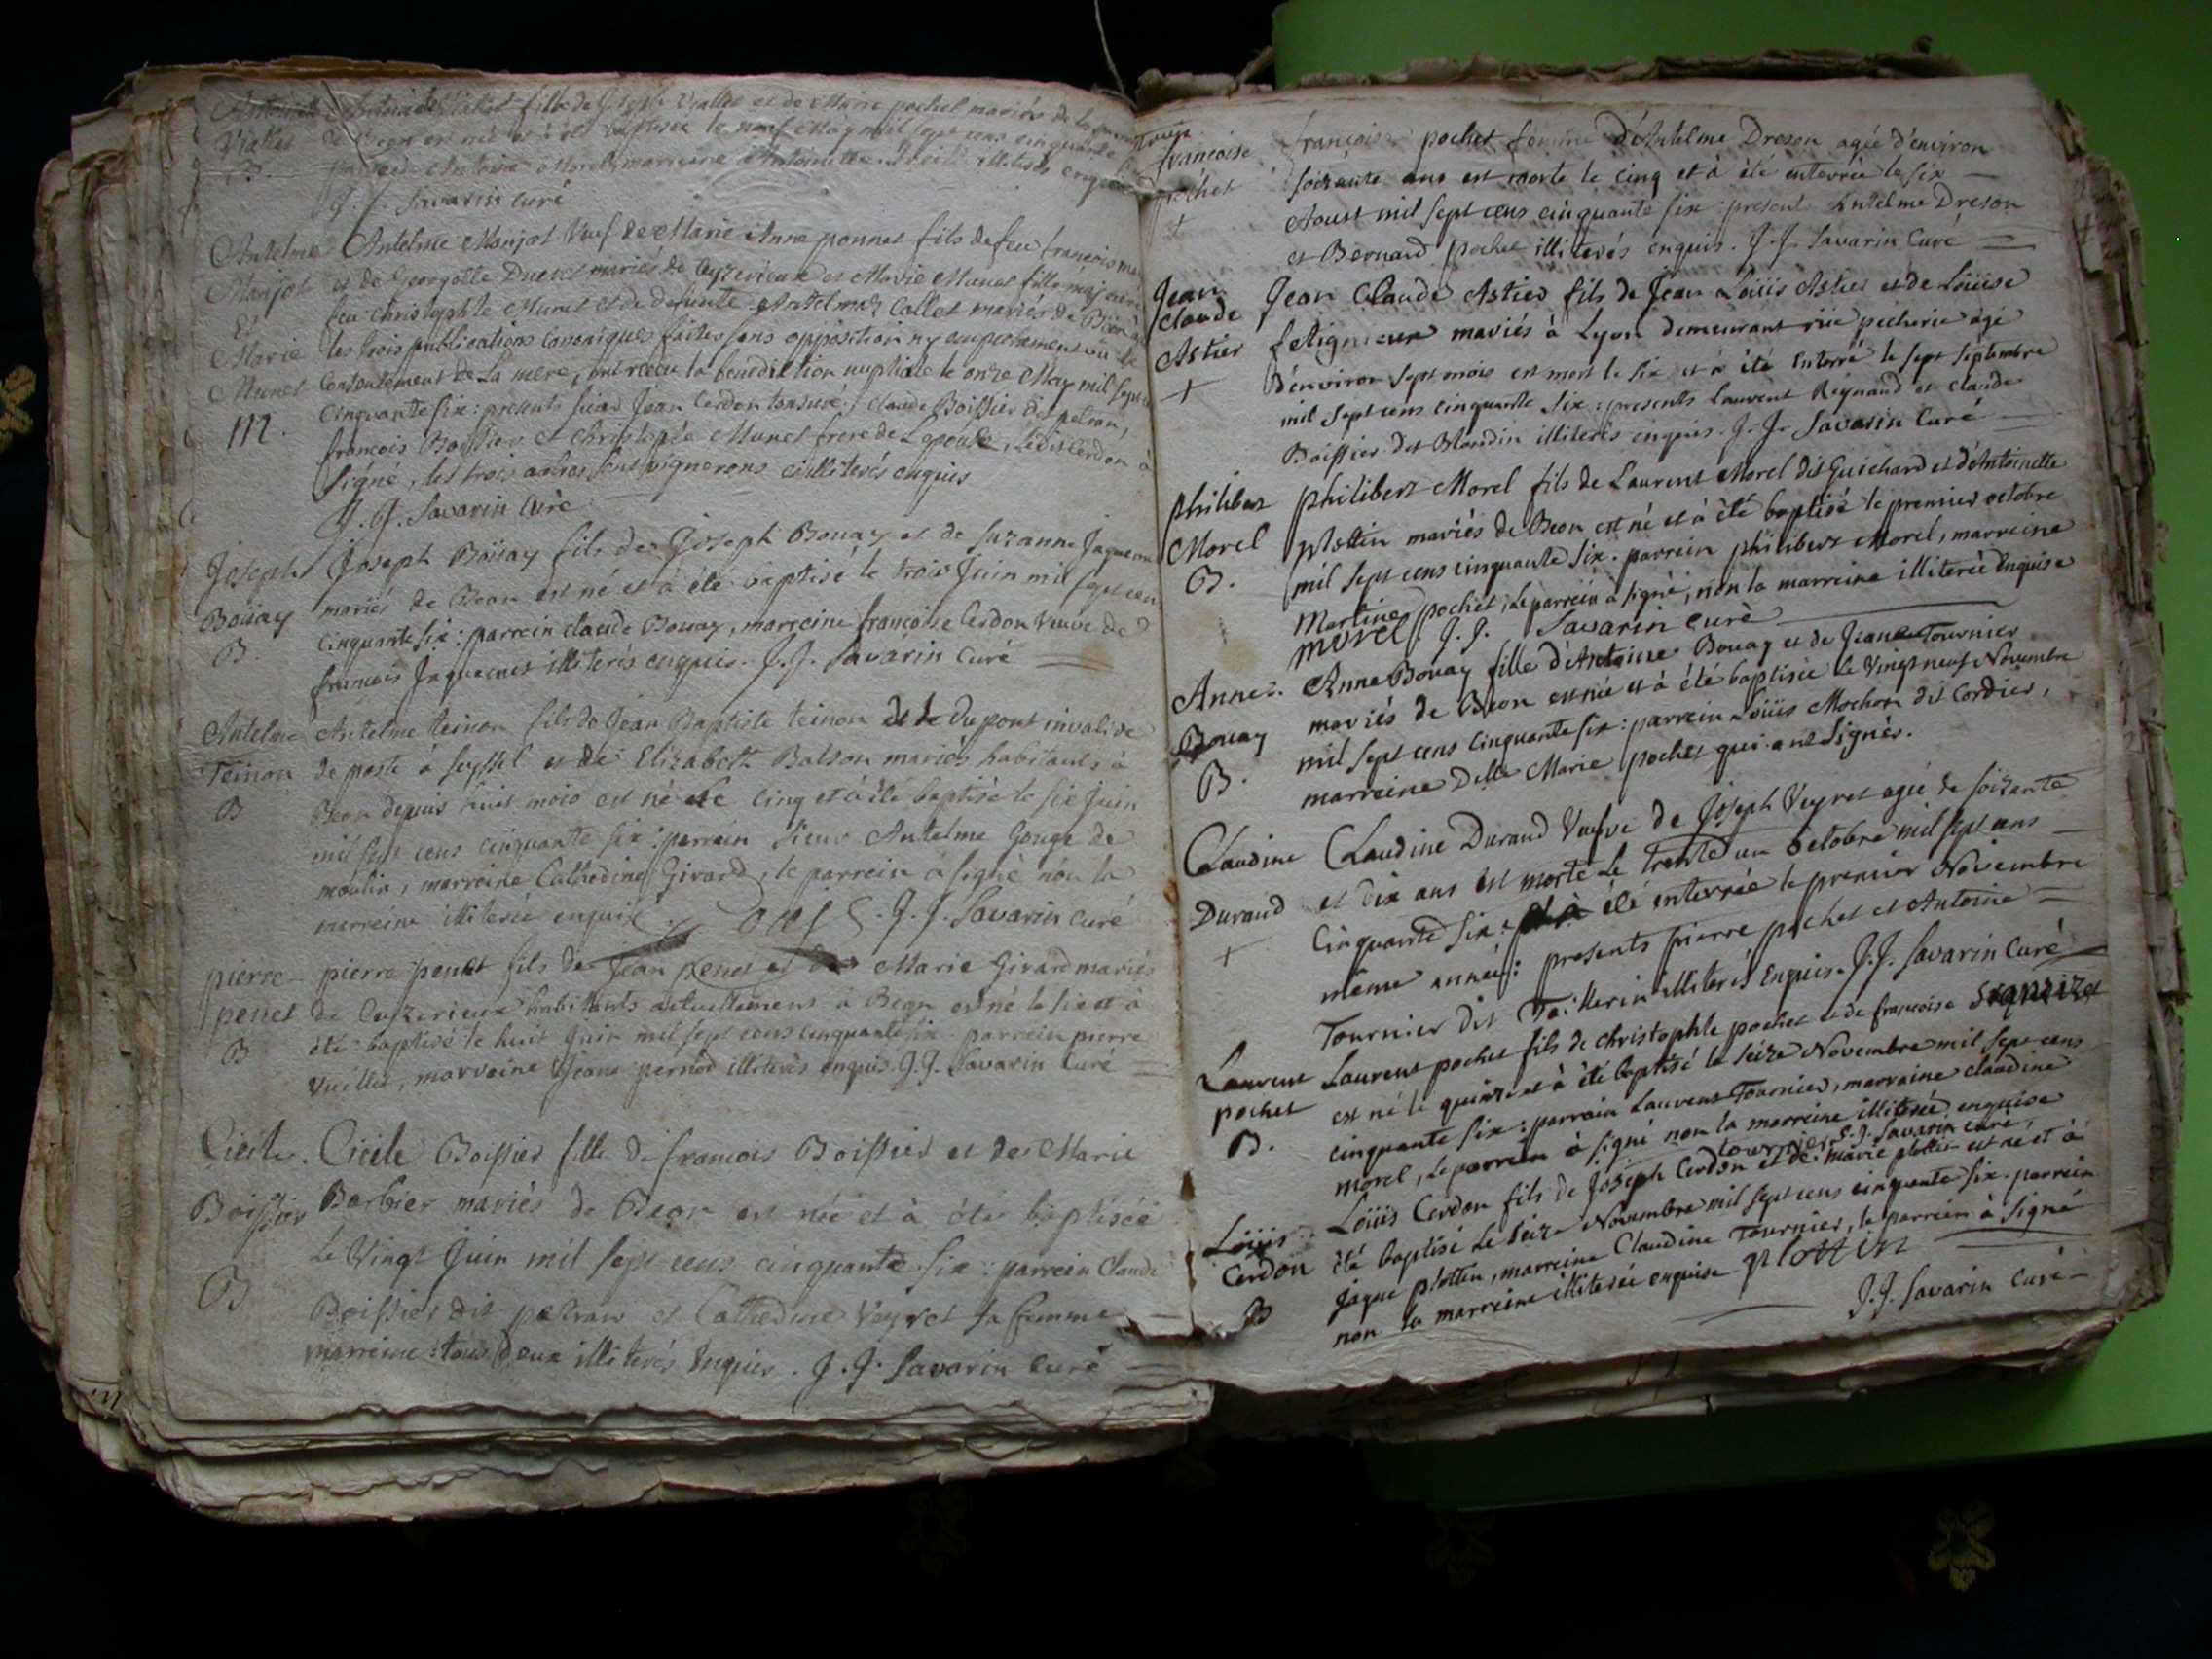 Antoinette Viallet fille de Joseph Viallet et de Marie pochet mariés de la
Viallet de Beon est née et à été baptisée le neuf May mil sept cens cinquante
B. Antoine marreine Antoinette illiterés enquis
J. J. Savarin Curé
Antelme Antelme Marjot Veuf de Marie Anne ponnet fils de feu francois
Marjot et de Georgette mariés de Ceyzerieux et Marie Munet fille majeure
Et feu christophle Munet et de defunte Antelmaz Collet mariés de Beon
Marie les trois publications canoniques faites sans opposition ny empechement
Munet Consentement de La mere, ont receu la benediction nuptiale le onze May mil sept
M. Cinquante six : presents Jean Cerdon Claude Boissier dit petran,
francois Boissier et christophle Munet frere de Lepouse, Ledit Cerdon à
signé, les trois autres sont vignerons illiterés enquis
J. J. Savarin Curé
Joseph Joseph Boüay fils de Joseph Bouay et de Suzanne
Boüay mariés de Beon est né et à été baptisé le trois Juin mil sept cens
B. Cinquante six : parrein claude Bouay, marreine francoise Cerdon Veuve de
francois Jaquemet illiterés enquis. J. J. Savarin Curé
Antelme Antelme teinon fils de Jean Baptiste teinon dit Dupont invalide
Teinon de poste à seyssel et de Elizabeth Batson mariés habitants à
B Beon depuis huit mois est né le Cinq et à été baptisé le six Juin
mil sept cens cinquante six : parrein Sieur Antelme Gouge de
moulin, marreine Catherine Girard, le parrein à signé non la
marreine illiterée enquise J. J. Savarin Curé
pierre pierre penet fils de Jean penet et de Marie Girard mariés
penet de Ceyzerieux habitants actuellement à Beon est né le six et à
B été baptisé le huit Juin mil sept cens cinquante six. parrein pierre
Vuillet, marreine Jeane pernod illiterés enquis. J. J. Savarin Curé
Cicile. Cicile Boissier fille de francois Boissier et de Marie
Boissier Barbier mariés de Beon est née et à été baptisée
Le Vingt Juin mil sept cens cinquante six : parrein Claude
B Boissier dit petran et Catherine Veyret sa femme
marreine : tous deux illiterés Enquis. J. J. Savarin Curé
francoise françoise pochet femme d'Antelme Dreson agée d'environ
pochet soixante ans est morte le cinq et à été enterrée le six
+ Aoust mil sept cens cinquante six : presents Antelme Dreson
et Bernard pochet illiterés enquis. J. J. Savarin Curé
Jean Jean Claude Astier fils de Jean Loüis Astier et de Loüise
claude fetignieux mariés à Lyon demeurant rüe pecherie agé
Astier D'environ sept mois est mort le six et à été Enterré le sept septembre
+ mil sept cens cinquante six : presents Laurent Reynaud et claude
Boissier dit Blandin illiterés enquis. J. J. Savarin Curé
philibert philibert Morel fils de Laurent Morel dit Guichard et d'Antoinette
Morel plottin mariés de Beon est né et à été baptisé le premier octobre
B. mil sept cens cinquante six. parrein philibert Morel, marreine
Martine pochet, le parrein à signé, non la marreine illiterée Enquise
morel J. J. Savarin Curé
Anne Anne Bouay fille d'Antoine Bouay et de Jeane Tournier
Bouay mariés de Beon est née et à été baptisée le Vingt neuf Novembre
B. mil sept cens Cinquante six : parrein Loüis Mochon dit Cordier,
marreine Delle Marie pochet qui ont signés.
Claudine Claudine Durand Veufve de Joseph Veyret agée de soixante
Durand et dix ans est morte Le trente un octobre mil sept cens
+ Cinquante six : et à été enterrée le premier Novembre
même année : presents pierre pochet et Antoine
Tournier dit Taillerin illiterés Enquis. J. J. Savarin Curé
Laurent Laurent pochet fils de christophle pochet et de francoise
pochet est né le quinze et à été baptisé le seize Novembre mil sept cens
B. cinquante six : parrain Laurent Tournier, marraine claudine
morel, Le parrein à signé non la marreine illiterée enquise
tournier J. J. Savarin Curé
Loüis Loüis Cerdon fils de Joseph Cerdon et de marie plottin est né et à
Cerdon été baptisé Le seize Novembre mil sept cens cinquante six. parrein
B Jaque plottin, marreine Claudine Tournier, le parrein à signé
non la marreine illiterée enquise plottin
J. J. Savarin Curé